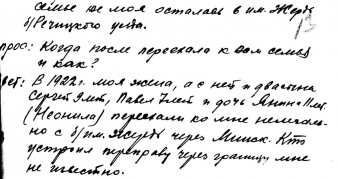 семье же моя осталась в им. Жерды
б/Речицкого уезда.
13
прос: Когда после переехала к вам семья
и как?
вет: В 1922 г. моя жена, а с ней и два сына
Сергей 9 лет, Павел 7 лет и дочь
(Неонила) переехали ко мне нелегаль-
но с б/им. Жерды через Минск. Кто
устроил переправу через границу мне
не известно.